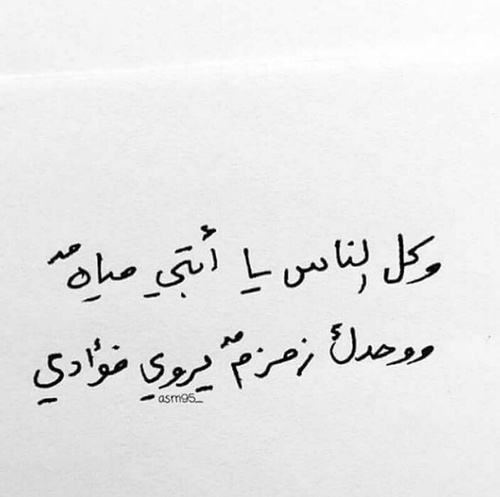 وكل الناس يا أبتي مياهٌ
ووحدك زمزمٌ يروي فؤادي
asm95_